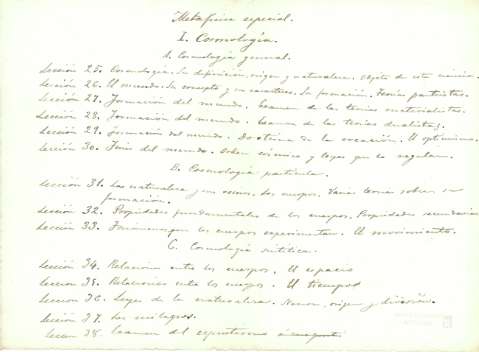 Metafisica especial.
I. Cosmología.
A. Cosmología general.
Lección 25. Cosmología. Su definición, origen y naturaleza. Objeto de esta ciencia.
Lección 26. El mundo. Su concepto y su caracteres. Su formación. Teorias panteistas.
Lección 27. Formación del mundo. Examen de las teorias materialistas.
Lección 28. Formación del mundo. Examen de las teorias dualistas.
Lección 29. Formación del mundo. Doctrina de la creación. El optimismo.
Lección 30. Fin del mundo. Orden cósmico y leyes que lo regulan.
B. Cosmología particular.
Lección 31. La naturaleza y sus seres. Los cuerpos. Varias teorias sobre su
formación.
Lección 32. Propiedades fundamentales de los cuerpos. Propiedades secundarias
Lección 33. Fenómenos que los cuerpos experimentan. El movimiento.
C. Cosmología sintética.
Lección 34. Relaciones entre los cuerpos. El espacio
Lección 35. Relaciones entre los cuerpos. El tiempo
Lección 36. Leyes de la naturaleza. Nocion, origen y división.
Lección 37. Los milagros.
Leccion 38. Examen del espiritismo